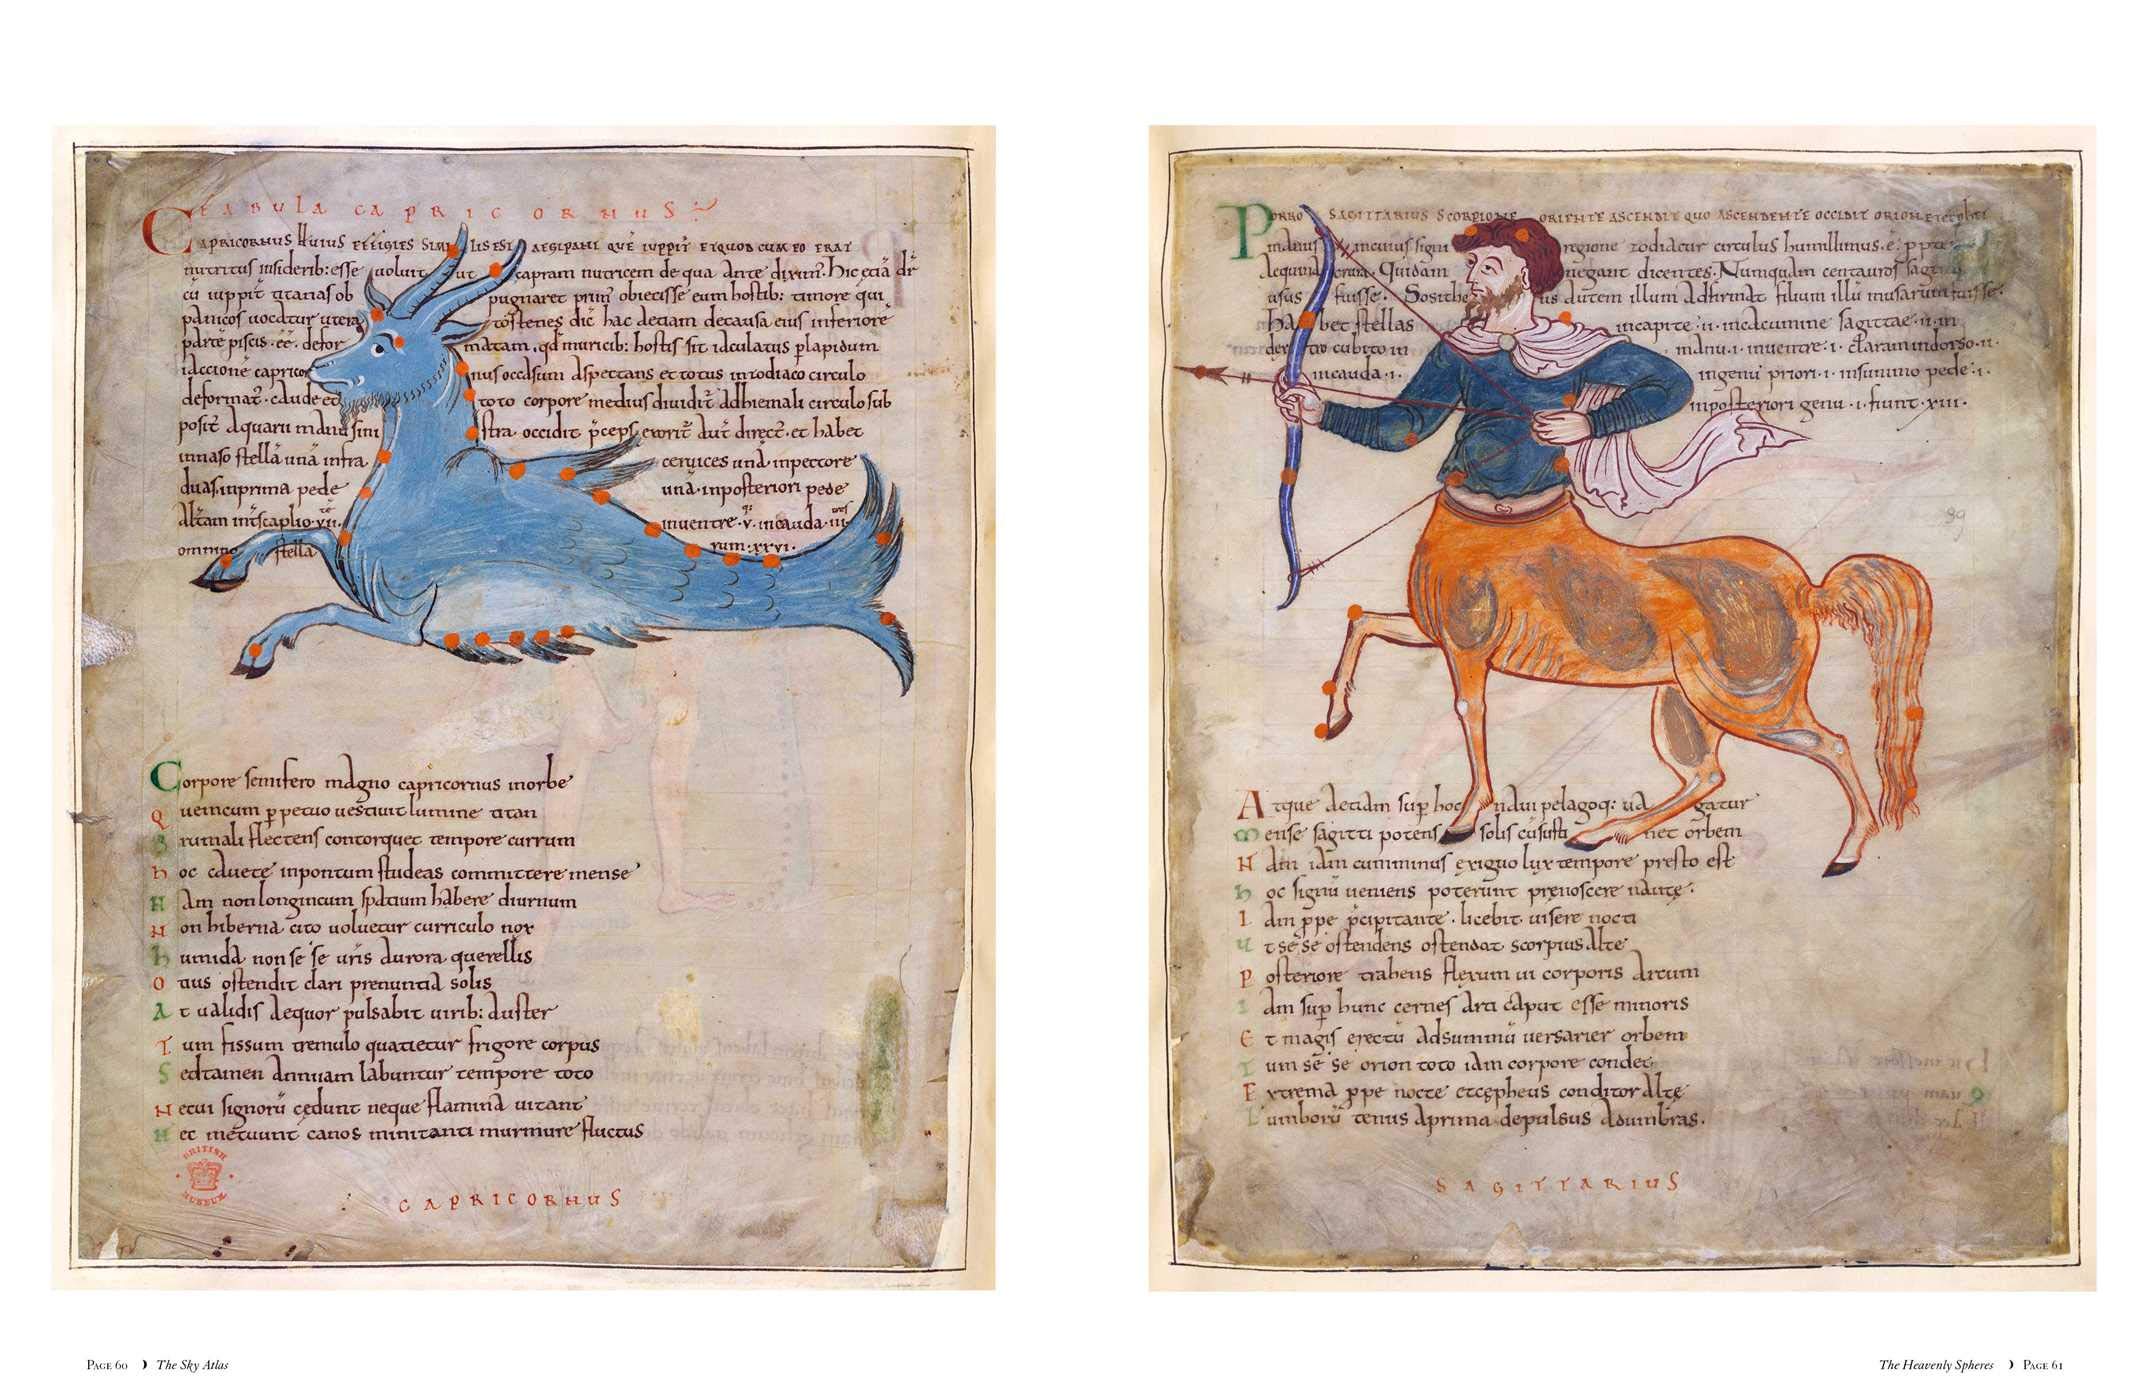 FABULA CAPRICORNUS
CAPRICORNUS huius effigies similis est aegipani quē iuppiṫ et quod cum eo erat
nutritus insiderib: esse voluit ut capram nutricem de qua ante diximꝰ. Hic etiā dr̄
cū iuppiṫ titanas ob pugnaret primꝰ obiecisse eum hostib: timore qui
panicos vocatur utera tostenes dic̄ hac aetiam decausa eius inferiorē
partē piscis .eē. defor matam, qd̄ muricib: hostis sit iaculatus p̱lapidum
iaccionē capricor nus occasum aspectans et totus in zodiaco circulo
deformat̄. cauda et toto corpore medius dividit̄ ad hiemali circulo sub
posit̄ aquarii manu sini stra. occidit p̄ceps, exorit̄ aut̄ direct̄. et habet
innaso stellā unā infra cervices unā inpectore
duas. inprima pede unā. inposteriori pede
altam int̄scapilio .vii. inventre .v. incauda .iii.
omnino stella rum .xxvi.
Corpore semifero magno capricornus inorbe
Quem cum p̱petuo vestivit lumine titan
Brumali flectens contorquet tempore currum
hoc cavete inpontum studeas committere mense
Nam non longincum spatium habere diurnum
Non hiberna cito voluetur curriculo nox
humida non sē sē uris aurora querellis
Otius ostendit clari prenuntia solis
At validis aequor pulsabit virib: auster
Tum fissum tremulo quatietur frigore corpus
Sed tamen annuam labuntur tempore toto
Nec ui signorū cędunt neque flamina vitant
Nec metuunt canos minitanti murmure fluctus
BRITISH
MUSEUM
CAPRICORNUS
PAGE 60 The Sky Atlas
PORRO SAGITTARIUS SCORPIONE ORIENTE ASCENDIT QUO ASCENDENTE OCCIDIT ORION
incuius signi regione zodiacur circulus humillimus .ē.
Quidam negant dicentes. Numquam centauros
usus fuisse. Sosithe us autem illum adfirmat filium illū musarum fuisse.
Habet stellas incapite .ii. incacumine sagittae .ii. in
dextro cubito in manu .i. inventre .i. claram indorso .ii.
incauda .i. ingenu priori .i. insummo pede .i.
inposteriori genu .i. fiunt .xiii.
39
Atque aetiam sup̱ hoc navi pelagoq: va gatur
Mense sagitti potens solis cū susti net orbem
Nam iam cumminus exiguo lux tempore presto est
hoc signū veniens poterunt pręnoscere nautę.
Iam p̱pe p̄cipitante. licebit. visere nocti
Ut sē sē ostendens ostendat scorpius alte
Posteriore trahens flexum vi corporis arcum
Iam sup̱ hunc cernes arti caput esse minoris
Et magis erectū adsummū versarier orbem
Tum sē sē orion toto iam corpore condet
Extrema p̱pe nocte et cępheus conditor alte
Lumborū tenus aprima depulsus adumbras.
SAGITTARIUS
The Heavenly Spheres PAGE 61